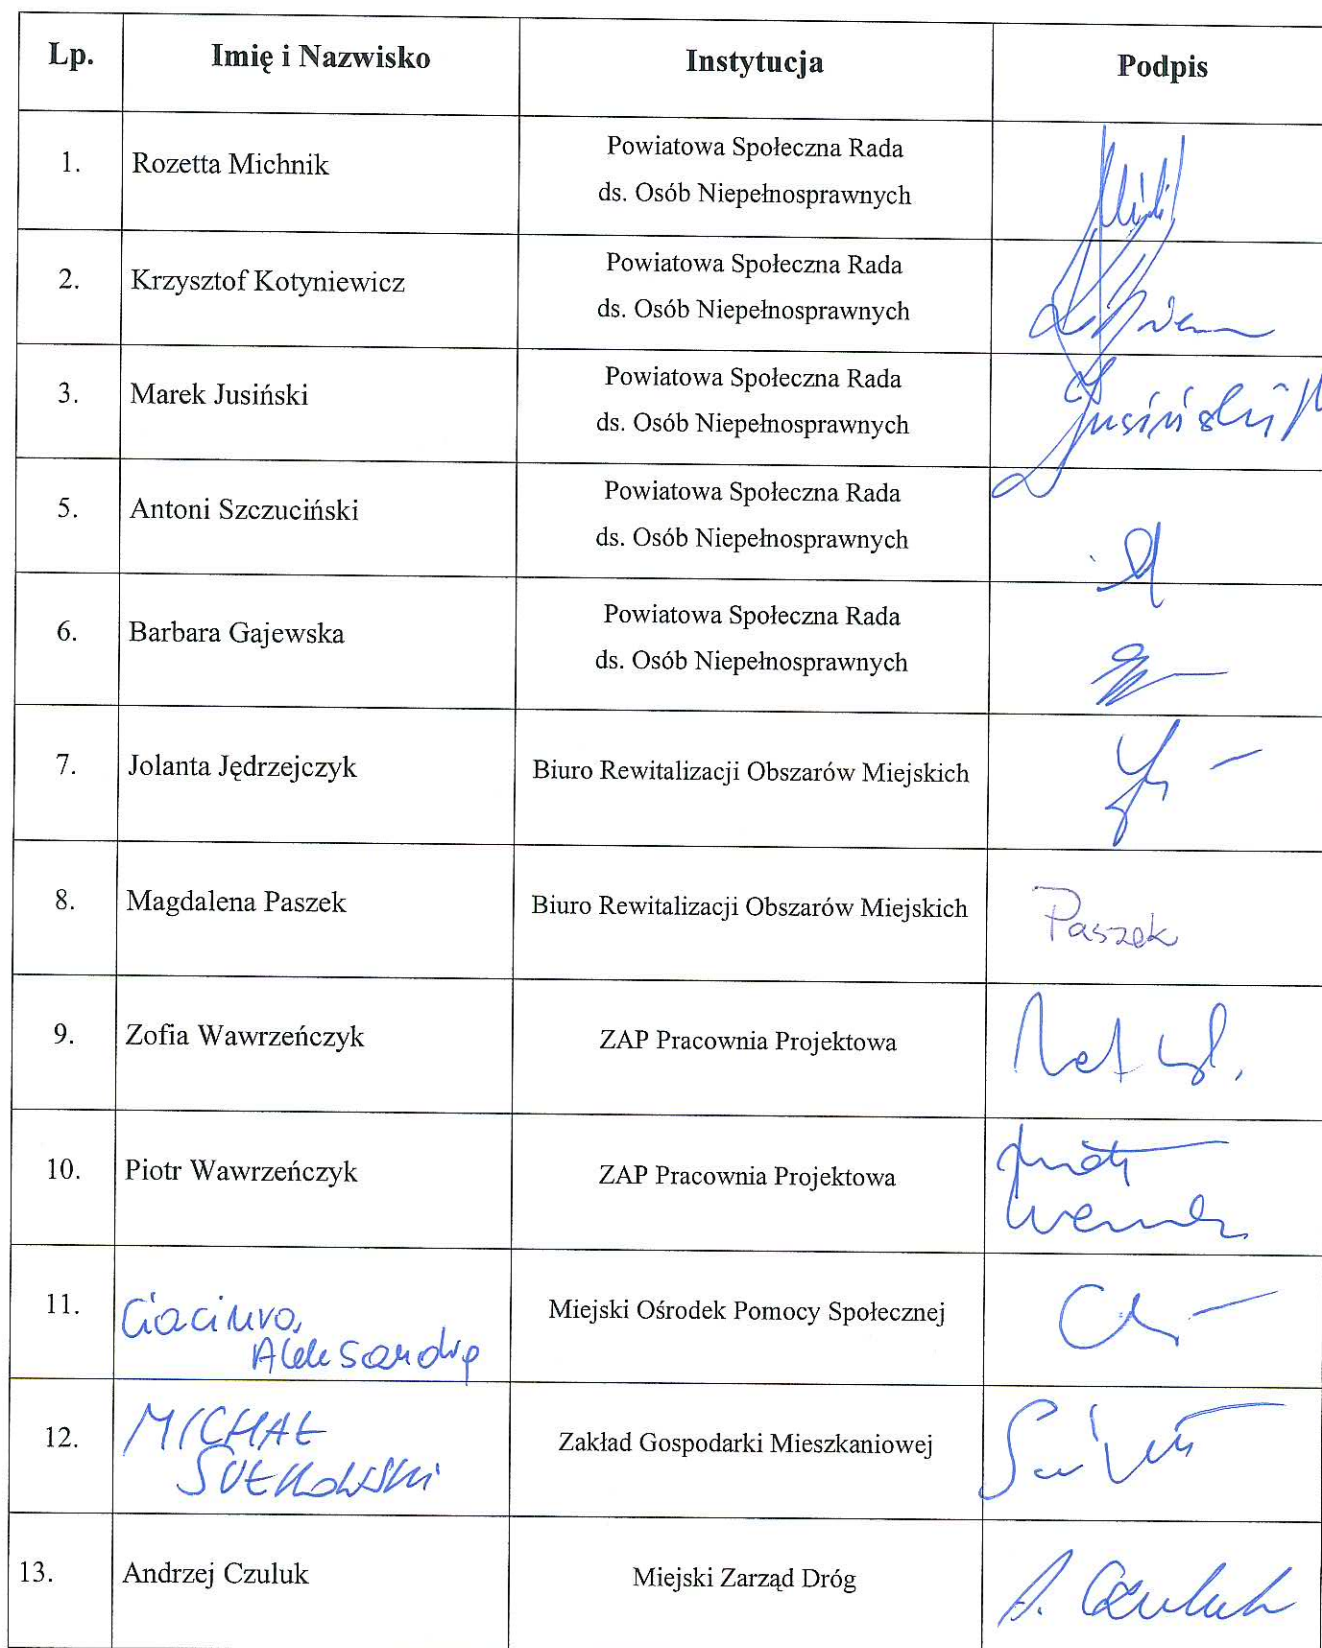 Lp. Imię i Nazwisko Instytucja Podpis
1. Rozetta Michnik Powiatowa Społeczna Rada
ds. Osób Niepełnosprawnych
2. Krzysztof Kotyniewicz Powiatowa Społeczna Rada
ds. Osób Niepełnosprawnych
3. Marek Jusiński Powiatowa Społeczna Rada
ds. Osób Niepełnosprawnych Jusiński
5. Antoni Szczuciński Powiatowa Społeczna Rada
ds. Osób Niepełnosprawnych
6. Barbara Gajewska Powiatowa Społeczna Rada
ds. Osób Niepełnosprawnych
7. Jolanta Jędrzejczyk Biuro Rewitalizacji Obszarów Miejskich
8. Magdalena Paszek Biuro Rewitalizacji Obszarów Miejskich Paszek
9. Zofia Wawrzeńczyk ZAP Pracownia Projektowa
10. Piotr Wawrzeńczyk ZAP Pracownia Projektowa
11. Miejski Ośrodek Pomocy Społecznej
Aleksandra
12. MICHAŁ Zakład Gospodarki Mieszkaniowej
SUŁKOWSKI
13. Andrzej Czuluk Miejski Zarząd Dróg A. Czuluk